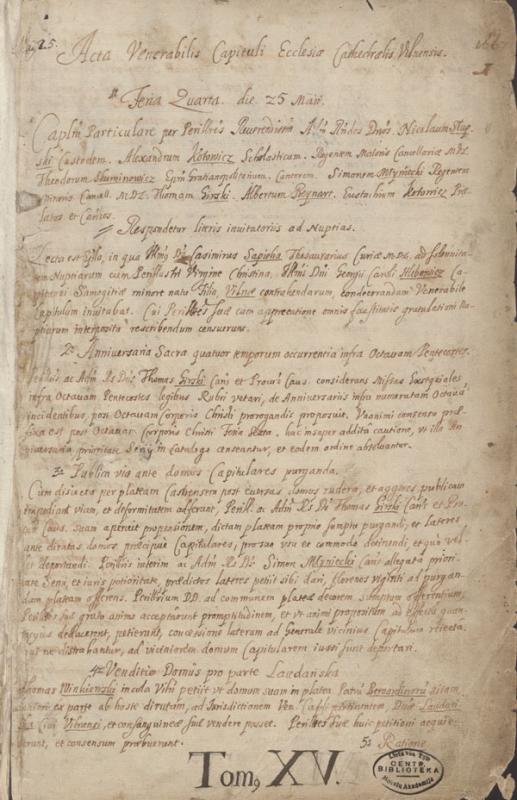 25.
Acta Venerabilis Capituli Ecclesiæ Cathedralis Vilnensis.
Feria Quarta die 25 Maii.
Caplm Particulare per Perillres Reverendissm Nicolaum
Custodem. Alexandrum Kotowicz Scholasticum. Regentem Maioris Cancellariæ M.D.L.
Theodorum Skuminowicz Epm Gratianopolitanum, Cantorem. Simonem Młynecki Regentem
Minoris Cancell. M.D.L. Thomam Girski. Albertum Reynart. Eustachium Kotowicz Præ
latos et Cancos.
Respondetur literis invitatoriis ad Nuptias.
Lecta est in qua Casimirus Sapieha Thesaurarius Curiæ M.D.L. ad solennita
tem Nuptiarum cum Virgine Christina, Caroli Hlebowicz Ca
Samogitiæ minore natu Filia, Vilnæ contrahendarum, condecorandam Venerabile
Capitulum invitabat. Cui Perillres suæ cum apprecatione omnis faustitatis gratulationi Nu
ptiarum interposita rescribendum censuerunt.
2o Anniversaria Sacra quatuor temporum occurrentia infra Octavam Pentecostes.
Perillris ac Adm Rs Dns Thomas Girski Cans et Procur Caus. considerans Missas Exequiales
infra Octavam Pentecostes legibus Rubri vetari, de Anniversariis infra numeratam Octavã
incidentibus, post Octavam Corporis Christi prorogandis proposuit. Unanimi consensu præ
fixa est post Octavam Corporis Christi Feria Sexta. hac insuper additâ cautione, ut illa An
niversaria prioritate Senÿ in Catalogo censeantur, et eodem ordine absolvantur.
3o Publica via ante domos Capitulares purganda.
Cum disiecta per plateam Castrensem post eversas domos rudera, et aggeres publicam
impediant viam, et deformitatem adferant, Perill. ac Adm Rs Ds Thomas Girski Cans et Pro
cur Caus. suam aperuit propensionem, dictam plateam proprio sumptu purgandi, et lateres
ante dirutas domos præcipue Capitulares, pro suo usu et commodo detinendi, et quo vel
let deportandi. Perillris interim ac Adm Rs Ds Simon Młynecki Cans allegata priori
tate Senÿ, et iuris potioritate, prædictos lateres petiit sibi dari, florenos viginti ad purgan
dam plateam offerens. Perillrium DD. ad communem plateæ decorem sumptum offerentium,
Perillres suæ grato animo acceptarunt promptitudinem, et ut animi propositum ad effectu quan
tocyus deducerent, petierunt, concessione laterum ad Generale vicinius Capitulum reiecta.
qui ne distrahantur, ad viciniorem domum Capitularem iussi sunt deportari.
4o Venditio Domus pro parte Laudańska
Thomas Winkiewski incola Vilni petiit ut domum suam in platea Patrũ Bernardinorũ sitam,
ex parte ab hoste dirutam, ad Jurisdictionem Ven. Capli pertinentem, Dnæ Laudań
ska Civi Vilnensi, et consanguineæ suæ vendere posset. Perillres suæ huic petitioni acquie
verunt, et consensum præbuerunt.
5o Ratione
Tomq XV.
CENTR.
BIBLIOTEKA